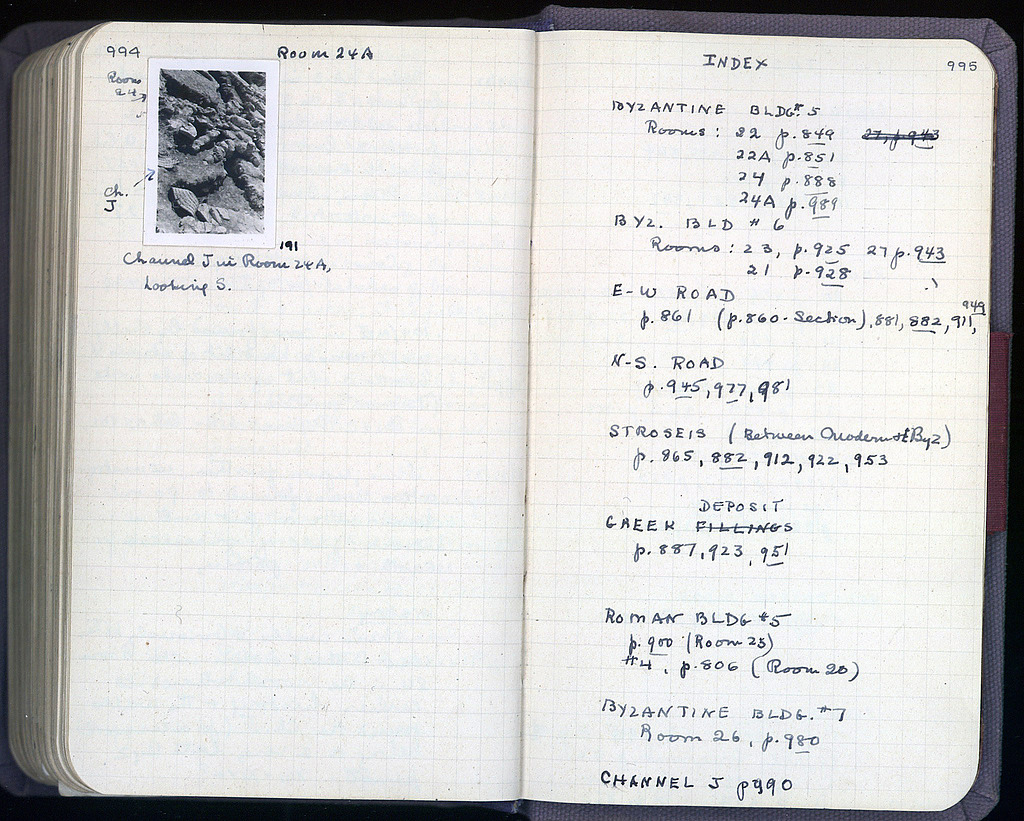 994
Room 24A
Room
24
Ch.
J
191
Channel J in Room 24A,
Looking S.
INDEX
995
BYZANTINE BLDG. # 5
Rooms: 22 p.849 27, p.943
22A p.851
24 p.888
24A p.989
BYZ. BLD # 6
Rooms: 23, p.925 27 p.943
21 p.928
E-W ROAD
949
p.861 (p.860-Section), 881, 882, 911,
N-S. ROAD
p.945, 977, 981
STROSEIS (Between Modern & Byz)
p. 865, 882, 912, 922, 953
DEPOSIT
GREEK FILLINGS
p.887, 923, 951
ROMAN BLDG #5
p.900 (Room 25)
#4, p.806 (Room 20)
BYZANTINE BLDG. #7
Room 26, p.980
CHANNEL J p990